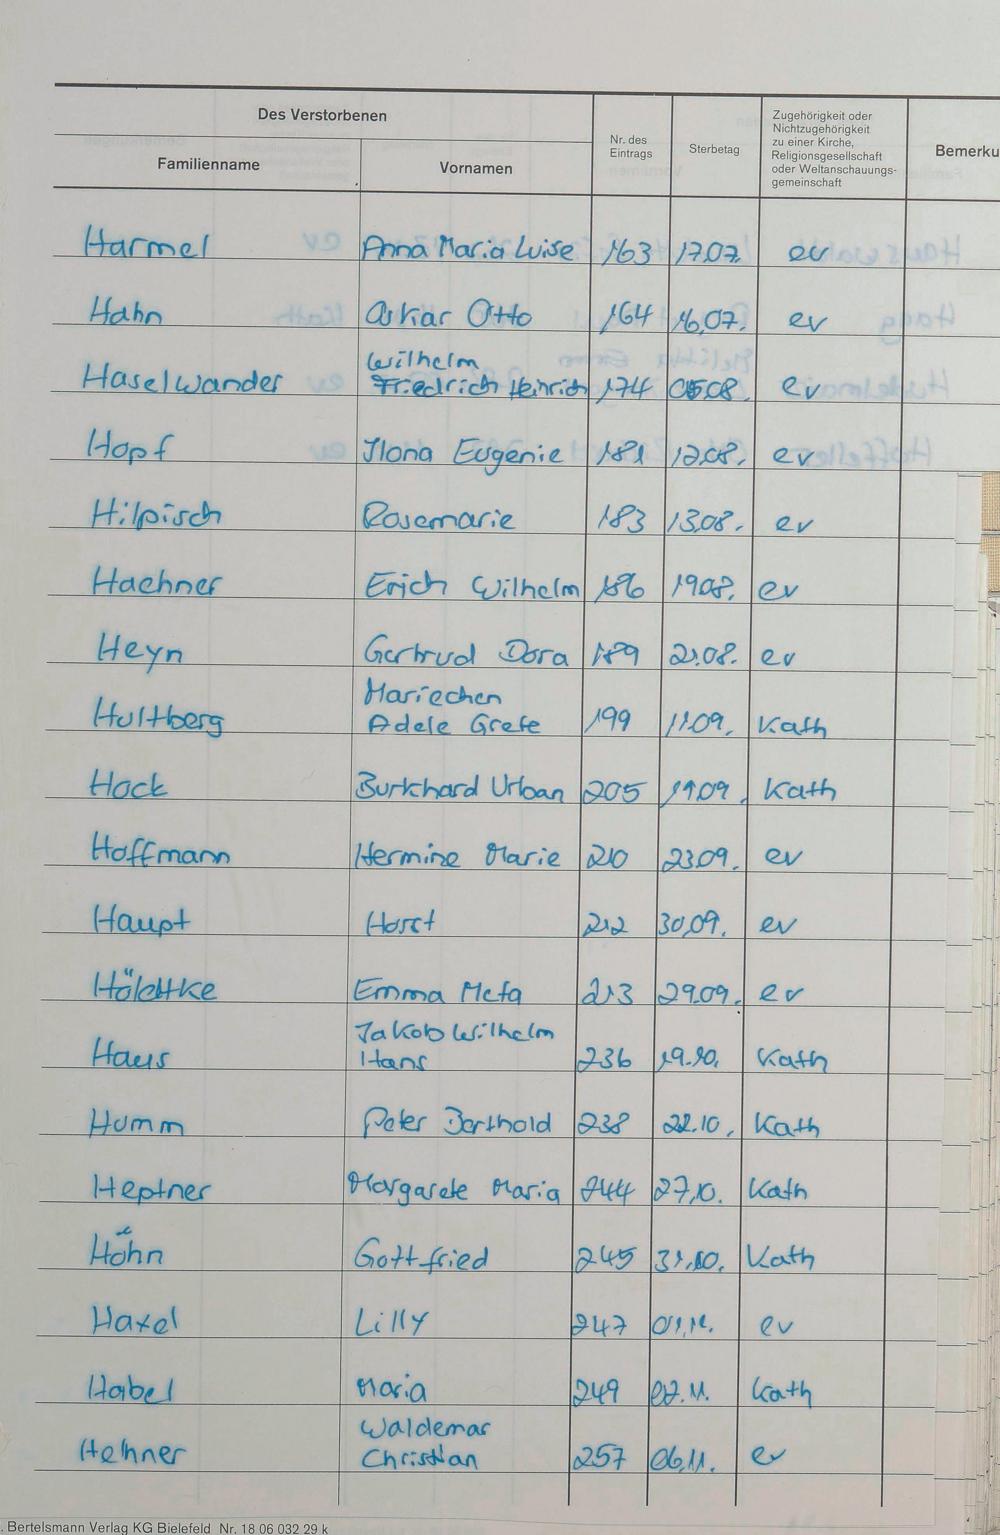 Des Verstorbenen
Familienname
Vornamen
Nr. des
Eintrags
Sterbetag
Zugehörigkeit oder
Nichtzugehörigkeit
zu einer Kirche,
Religionsgesellschaft
oder Weltanschauungs-
gemeinschaft
Bemerku
Harmel Anna Maria Luise 163 17.07. ev
Hahn Oskar Otto 164 16.07. ev
Wilhelm
Haselwander Friedrich Heinrich 174 05.08. ev
Hopf Ilona Eugenie 181 12.08. ev
Hilpisch Rosemarie 183 13.08. ev
Haehner Erich Wilhelm 186 19.08. ev
Heyn Gertrud Dora 189 21.08. ev
Mariechen
Hultberg Adele Grete 199 11.09. Kath
Hock Burkhard Urban 205 19.09. Kath
Hoffmann Hermine Marie 210 23.09. ev
Haupt Horst 212 30.09. ev
Emma Meta 213 29.09. ev
Jakob Wilhelm
Haus Hans 236 19.10. Kath
Humm Peter Berthold 238 22.10. Kath
Heptner Margarete Maria 244 27.10. Kath
Höhn Gottfried 245 31.10. Kath
Haxel Lilly 247 01.11. ev
Habel Maria 249 02.11. Kath
Waldemar
Hehner Christian 257 06.11. ev
. Bertelsmann Verlag KG Bielefeld Nr. 18 06 032 29 k